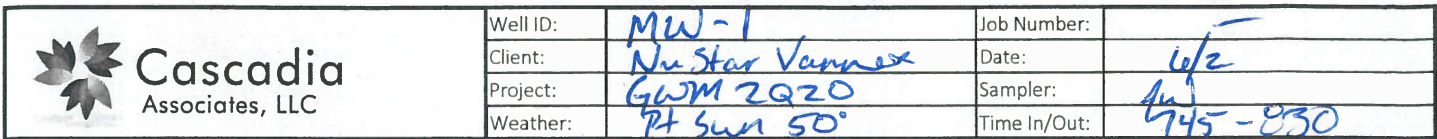 Cascadia
Associates, LLC
Well ID: MW-1 Job Number: —
Client: NuStar Vannex Date: 6/2
Project: GWM 2Q20 Sampler:
Weather: Pt Sun 50° Time In/Out: 745-830